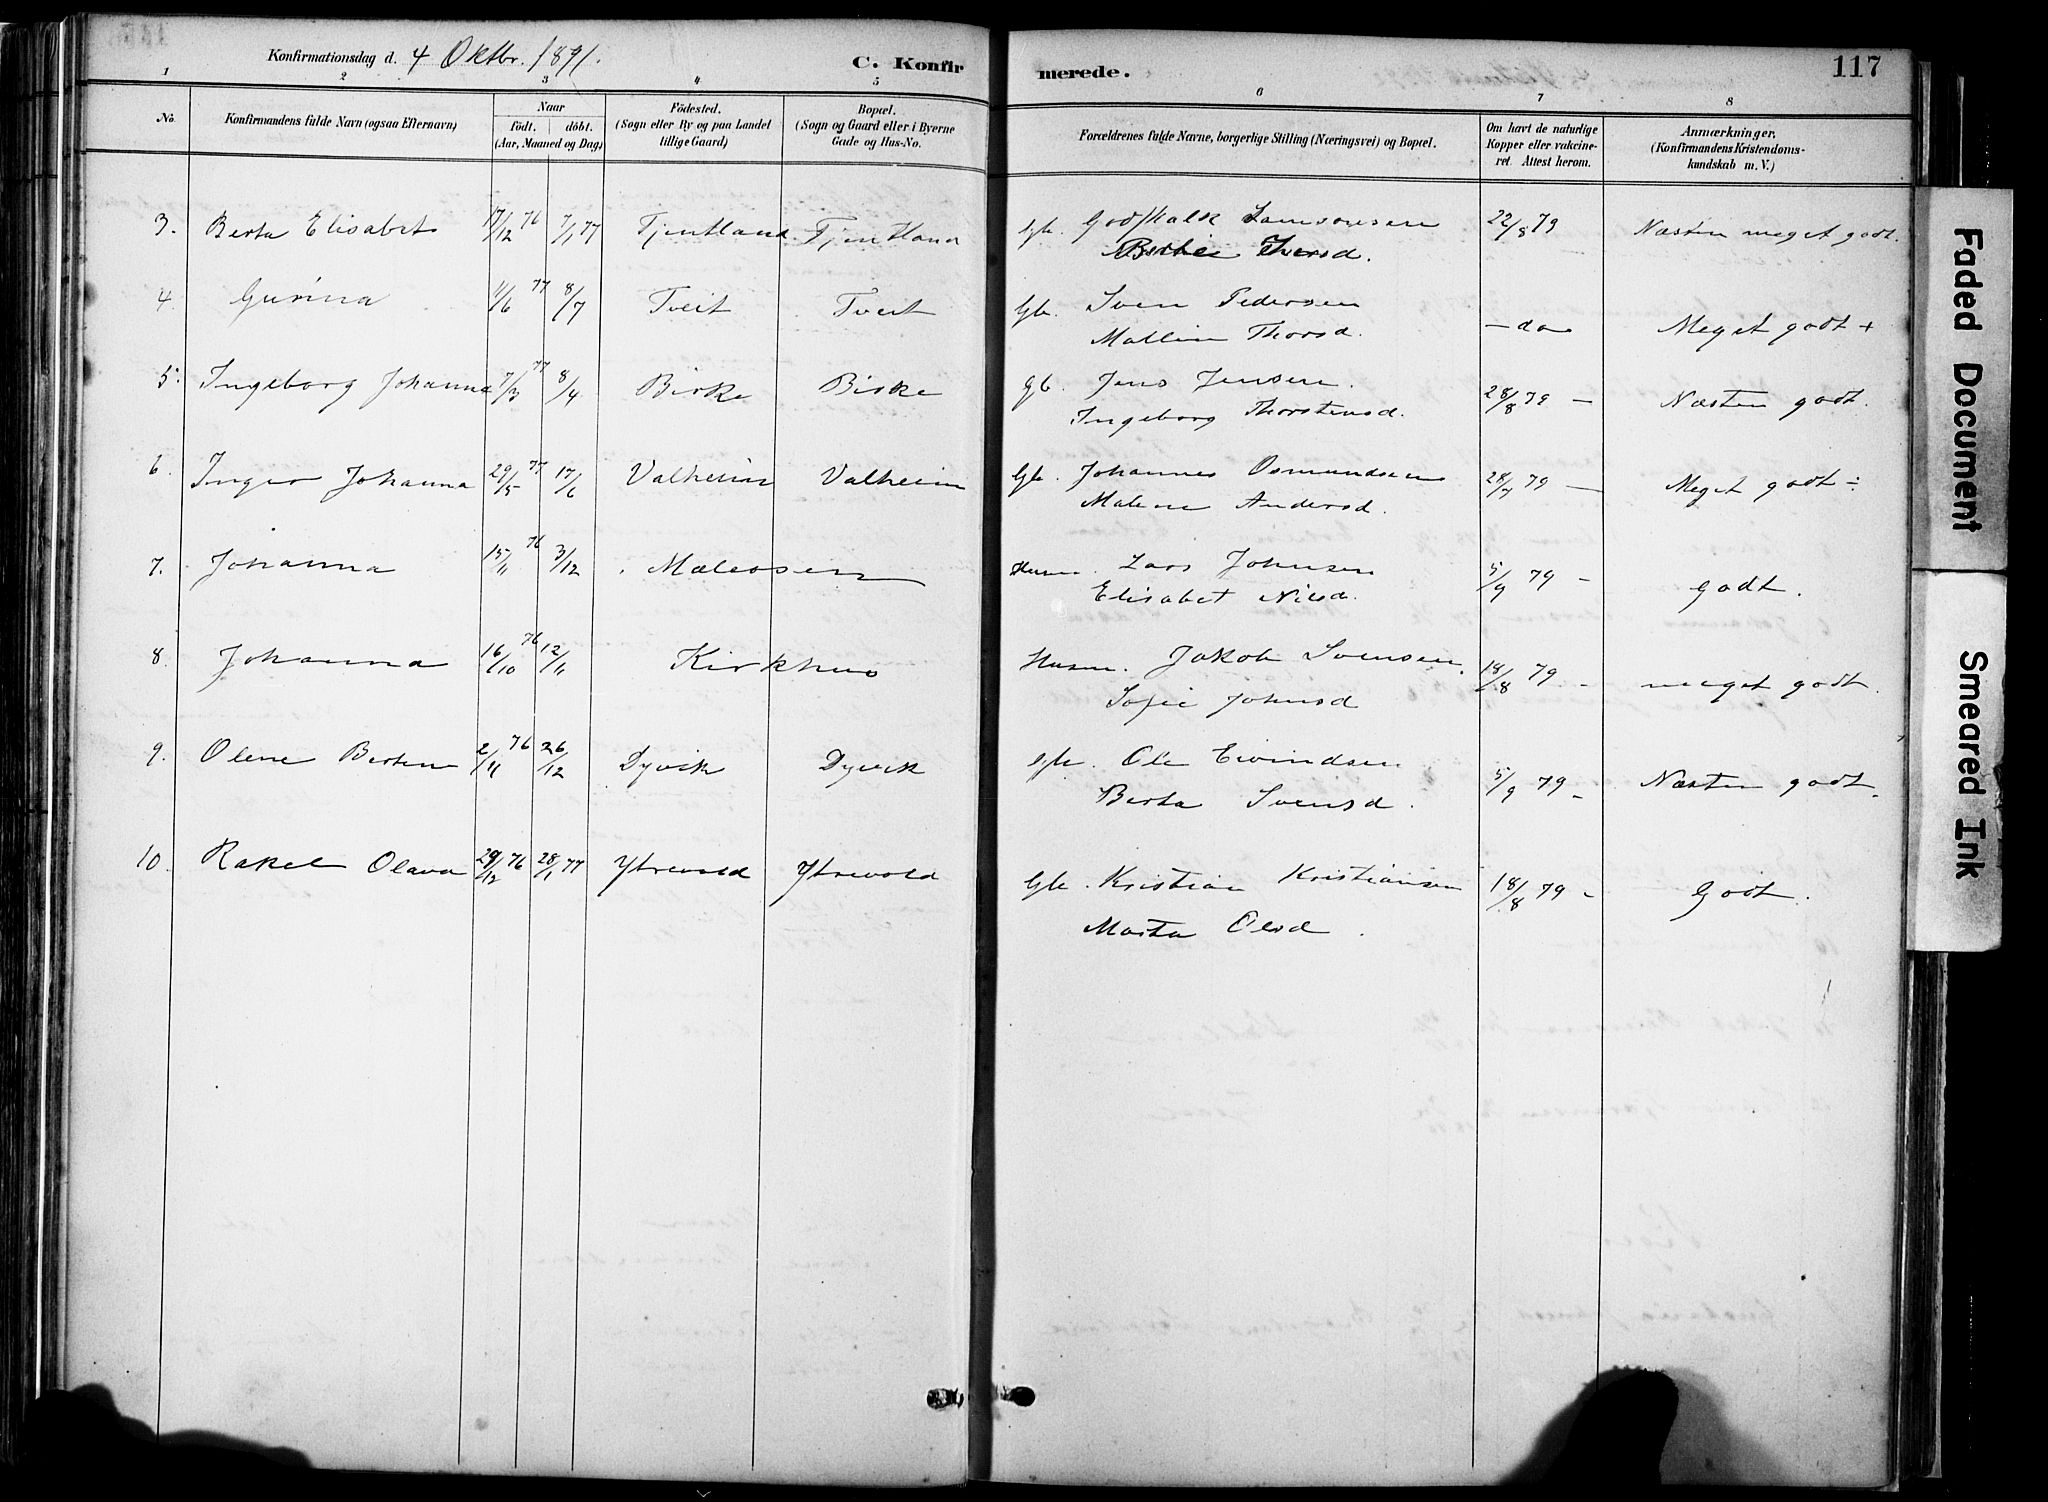 Konfirmationsdag d. 4 Oktbr. 1891.
C. Konfirmerede.
117
1 2 3 4 5 6 7 8
No.
Konfirmandens fulde Navn (ogsaa Efternavn)
Naar
födt. döbt.
(Aar, Maaned og Dag)
Födested.
(Sogn eller By og paa Landet
tillige Gaard)
Bopæl.
(Sogn og Gaard eller i Byerne
Gade og Hus-No.
Forældrenes fulde Navne, borgerlige Stilling (Næringsvei) og Bopæl.
Om havt de naturlige
Kopper eller vakcine-
ret. Attest herom.
Anmærkninger.
(Konfirmandens Kristendoms-
kundskab m. V.)
3. Berta Elisabet 17/12 76 7/1 77 Fjentland Fjentland Gb. Godskalk Samsonsen 22/8 79 Næsten meget godt.
Berthe Thorsd.
4. Gurina 11/6 77 8/7 Tveit Tveit Gb. Sven Pedersen
Mallin Thorsd. — do Meget godt +
5. Ingeborg Johanna 7/3 77 8/4 Birke Birke Gb. Jens Jensen. 28/8 79 — Næsten godt.
Ingeborg Thorstensd.
6. Inger Johanna 29/5 77 17/6 Valheim Valheim Gb. Johannes Osmundsen 28/7 79 — Meget godt ÷
Malene Andersd.
7. Johanna 15/11 76 3/12 Mæleosen Husm. Lars Johnsen 5/9 79 - godt.
Elisabet Nilsd.
8. Johanna 16/10 76 12/11 Kirkhus Husm. Jakob Svensen. 18/8 79. - meget godt.
Sofie Johnsd
9. Olene Bertine 2/11 76 26/12 Dyvik Dyvik Gb. Ole Eivindsen
Berta Svensd. 5/9 79 - Næsten godt.
10. Rakel Olava 29/12 76 28/1 77 Ytrevold Ytrevold Gb. Kristian Kristiansen 18/8 79 - Godt.
Marta Olsd.
Faded Document
Smeared Ink